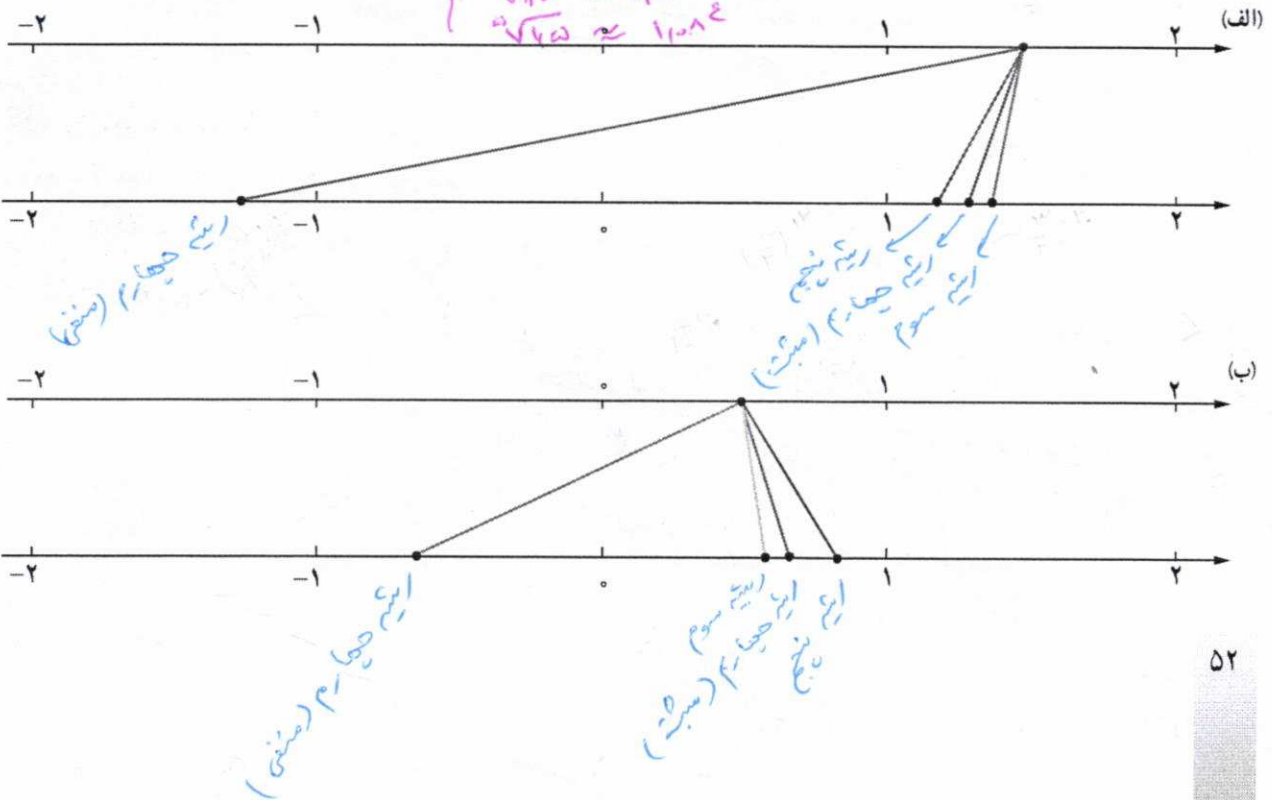 ⁵√۱٫۵ ≈ ۱٫۰۸۴
(الف)
-۲ -۱ ۰ ۱ ۲
-۲ -۱ ۰ ۱ ۲
ریشه چهارم (منفی)
ریشه پنجم
ریشه چهارم (مثبت)
ریشه سوم
(ب)
-۲ -۱ ۰ ۱ ۲
-۲ -۱ ۰ ۱ ۲
ریشه چهارم (منفی)
ریشه سوم
ریشه چهارم (مثبت)
ریشه پنجم
۵۲